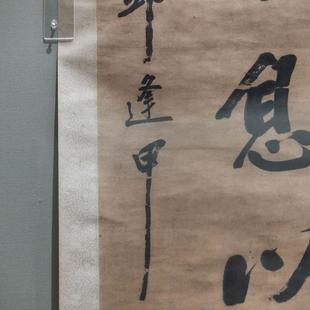 息以
逢甲